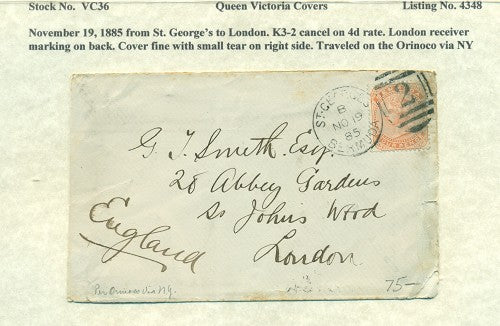 Stock No. VC36 Queen Victoria Covers Listing No. 4348
November 19, 1885 from St. George's to London. K3-2 cancel on 4d rate. London receiver
marking on back. Cover fine with small tear on right side. Traveled on the Orinoco via NY
ST. GEORGE'S
B
NO 19
85
BERMUDA
2
G. J. Smeeth. Esq.
28 Abbey Gardens
St Johns Wood
London
England
Per Orinoco via N.Y.
75-